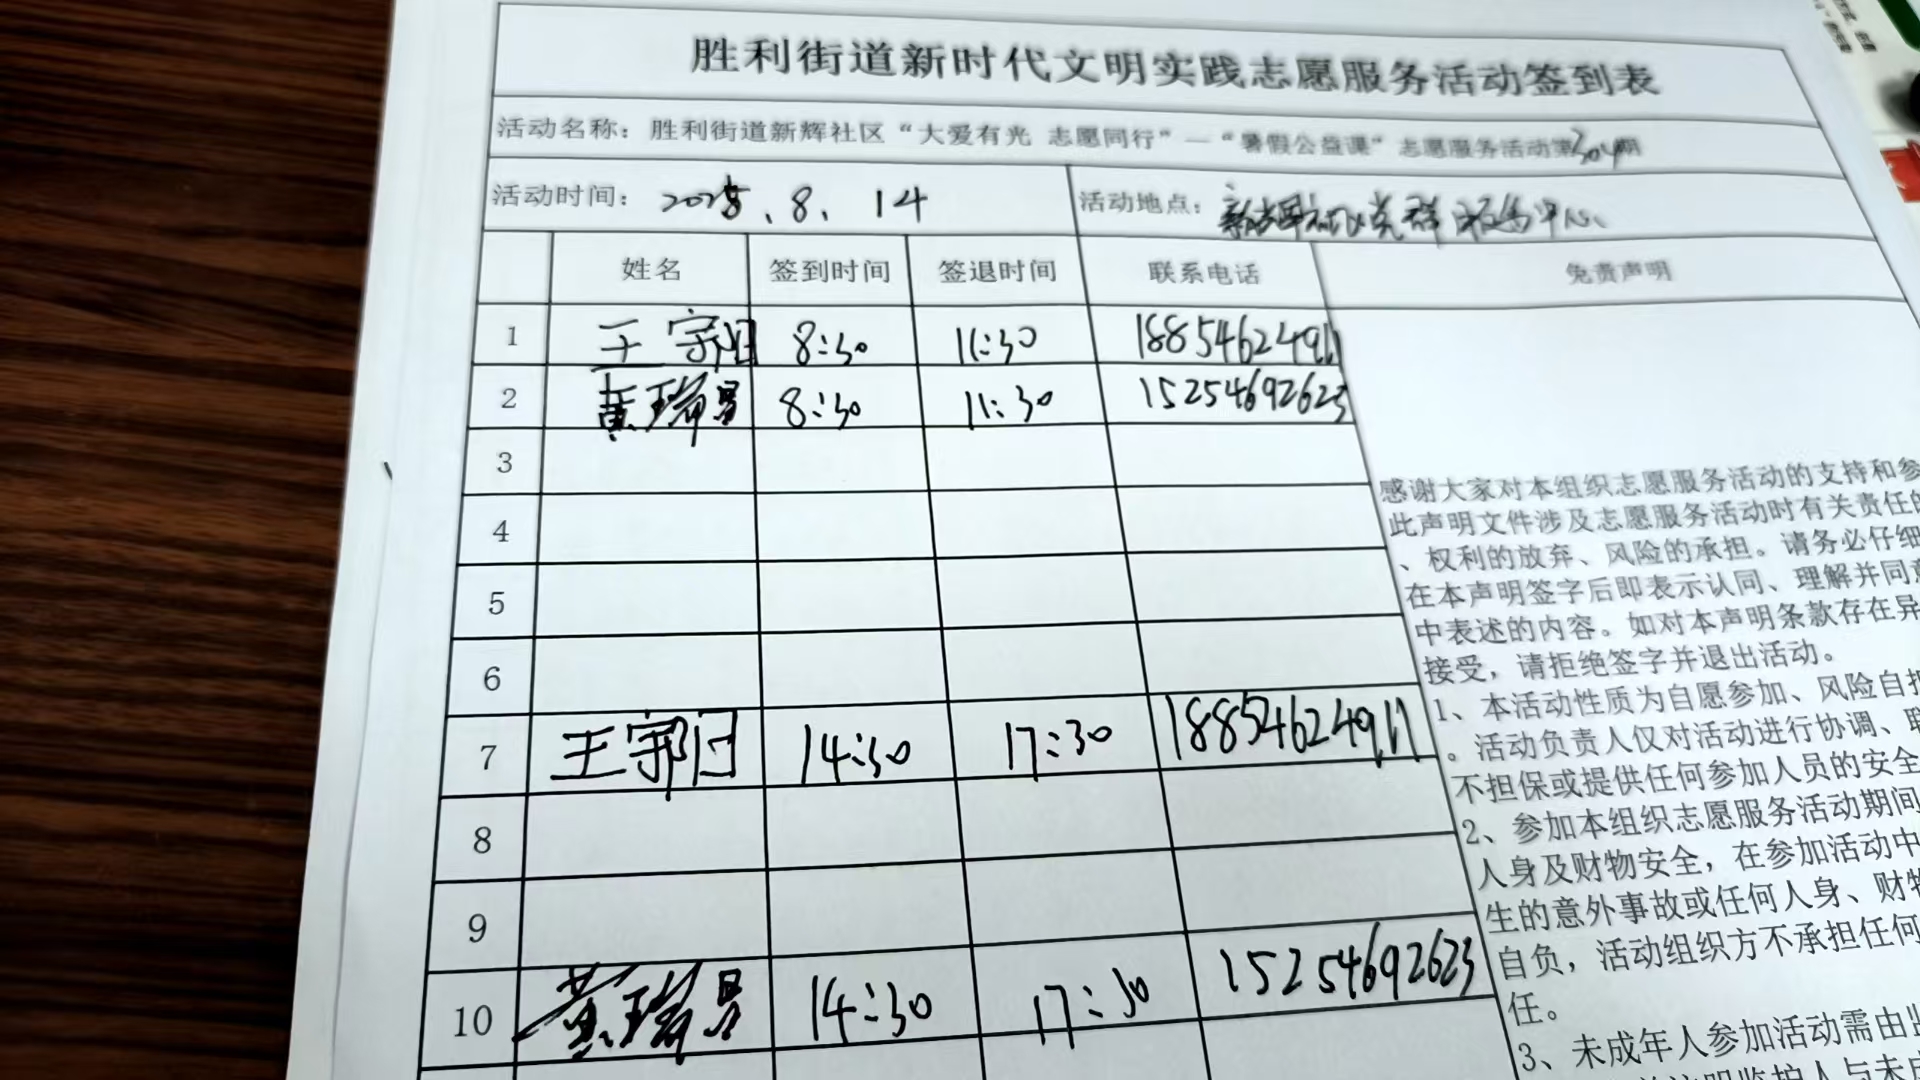 胜利街道新时代文明实践志愿服务活动签到表
活动名称：胜利街道新辉社区“大爱有光 志愿同行”—“暑假公益课”志愿服务活动第304期
活动时间：2025.8.14 活动地点：党群服务中心
姓名 签到时间 签退时间 联系电话 免责声明
1 王 8:30 11:30 18854624911
2 黄瑞 8:30 11:30 15254692623
3
4
5
6
7 王 14:30 17:30 18854624911
8
9
10 黄瑞 14:30 17:30 15254692623
感谢大家对本组织志愿服务活动的支持和参
此声明文件涉及志愿服务活动时有关责任的
、权利的放弃、风险的承担。请务必仔细
在本声明签字后即表示认同、理解并同意
中表述的内容。如对本声明条款存在异
接受，请拒绝签字并退出活动。
1、本活动性质为自愿参加、风险自担
。活动负责人仅对活动进行协调、联
不担保或提供任何参加人员的安全
2、参加本组织志愿服务活动期间
人身及财物安全，在参加活动中
生的意外事故或任何人身、财物
自负，活动组织方不承担任何
任。
3、未成年人参加活动需由监